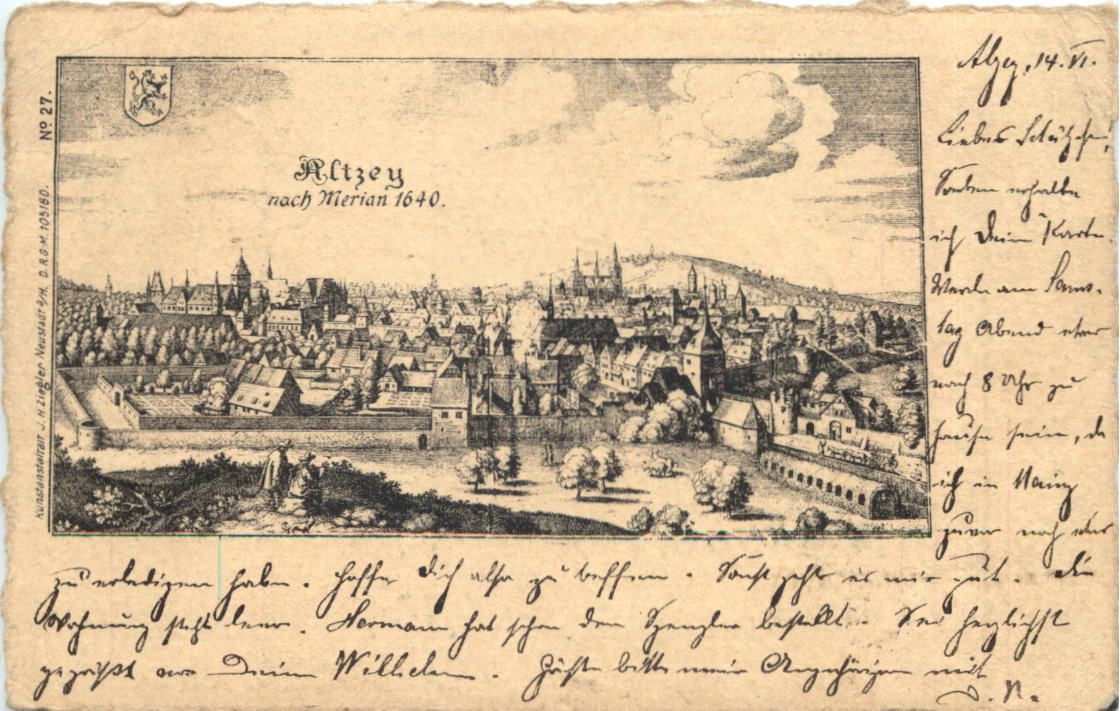 Altzey
nach Merian 1640.
No 27.
Kunstanstalt J. H. Ziegler Neustadt a/H. D.R.G.M. 105180.
Alzey, 14. VI.
Liebes
Soeben erhalte
ich Deine Karte.
Werde am Sams-
tag Abend etwa
nach 8 Uhr zu
Hause sein, da
ich in Mainz
zuvor noch etwas
zu erledigen habe. Hoffe Dich also zu treffen. Sonst geht es mir gut. Die
Wohnung steht leer. Hermann hat schon den Spengler bestellt. Sei herzlichst
gegrüßt von Deinem Wilhelm. Grüße bitte meine Angehörigen mit
D. O.